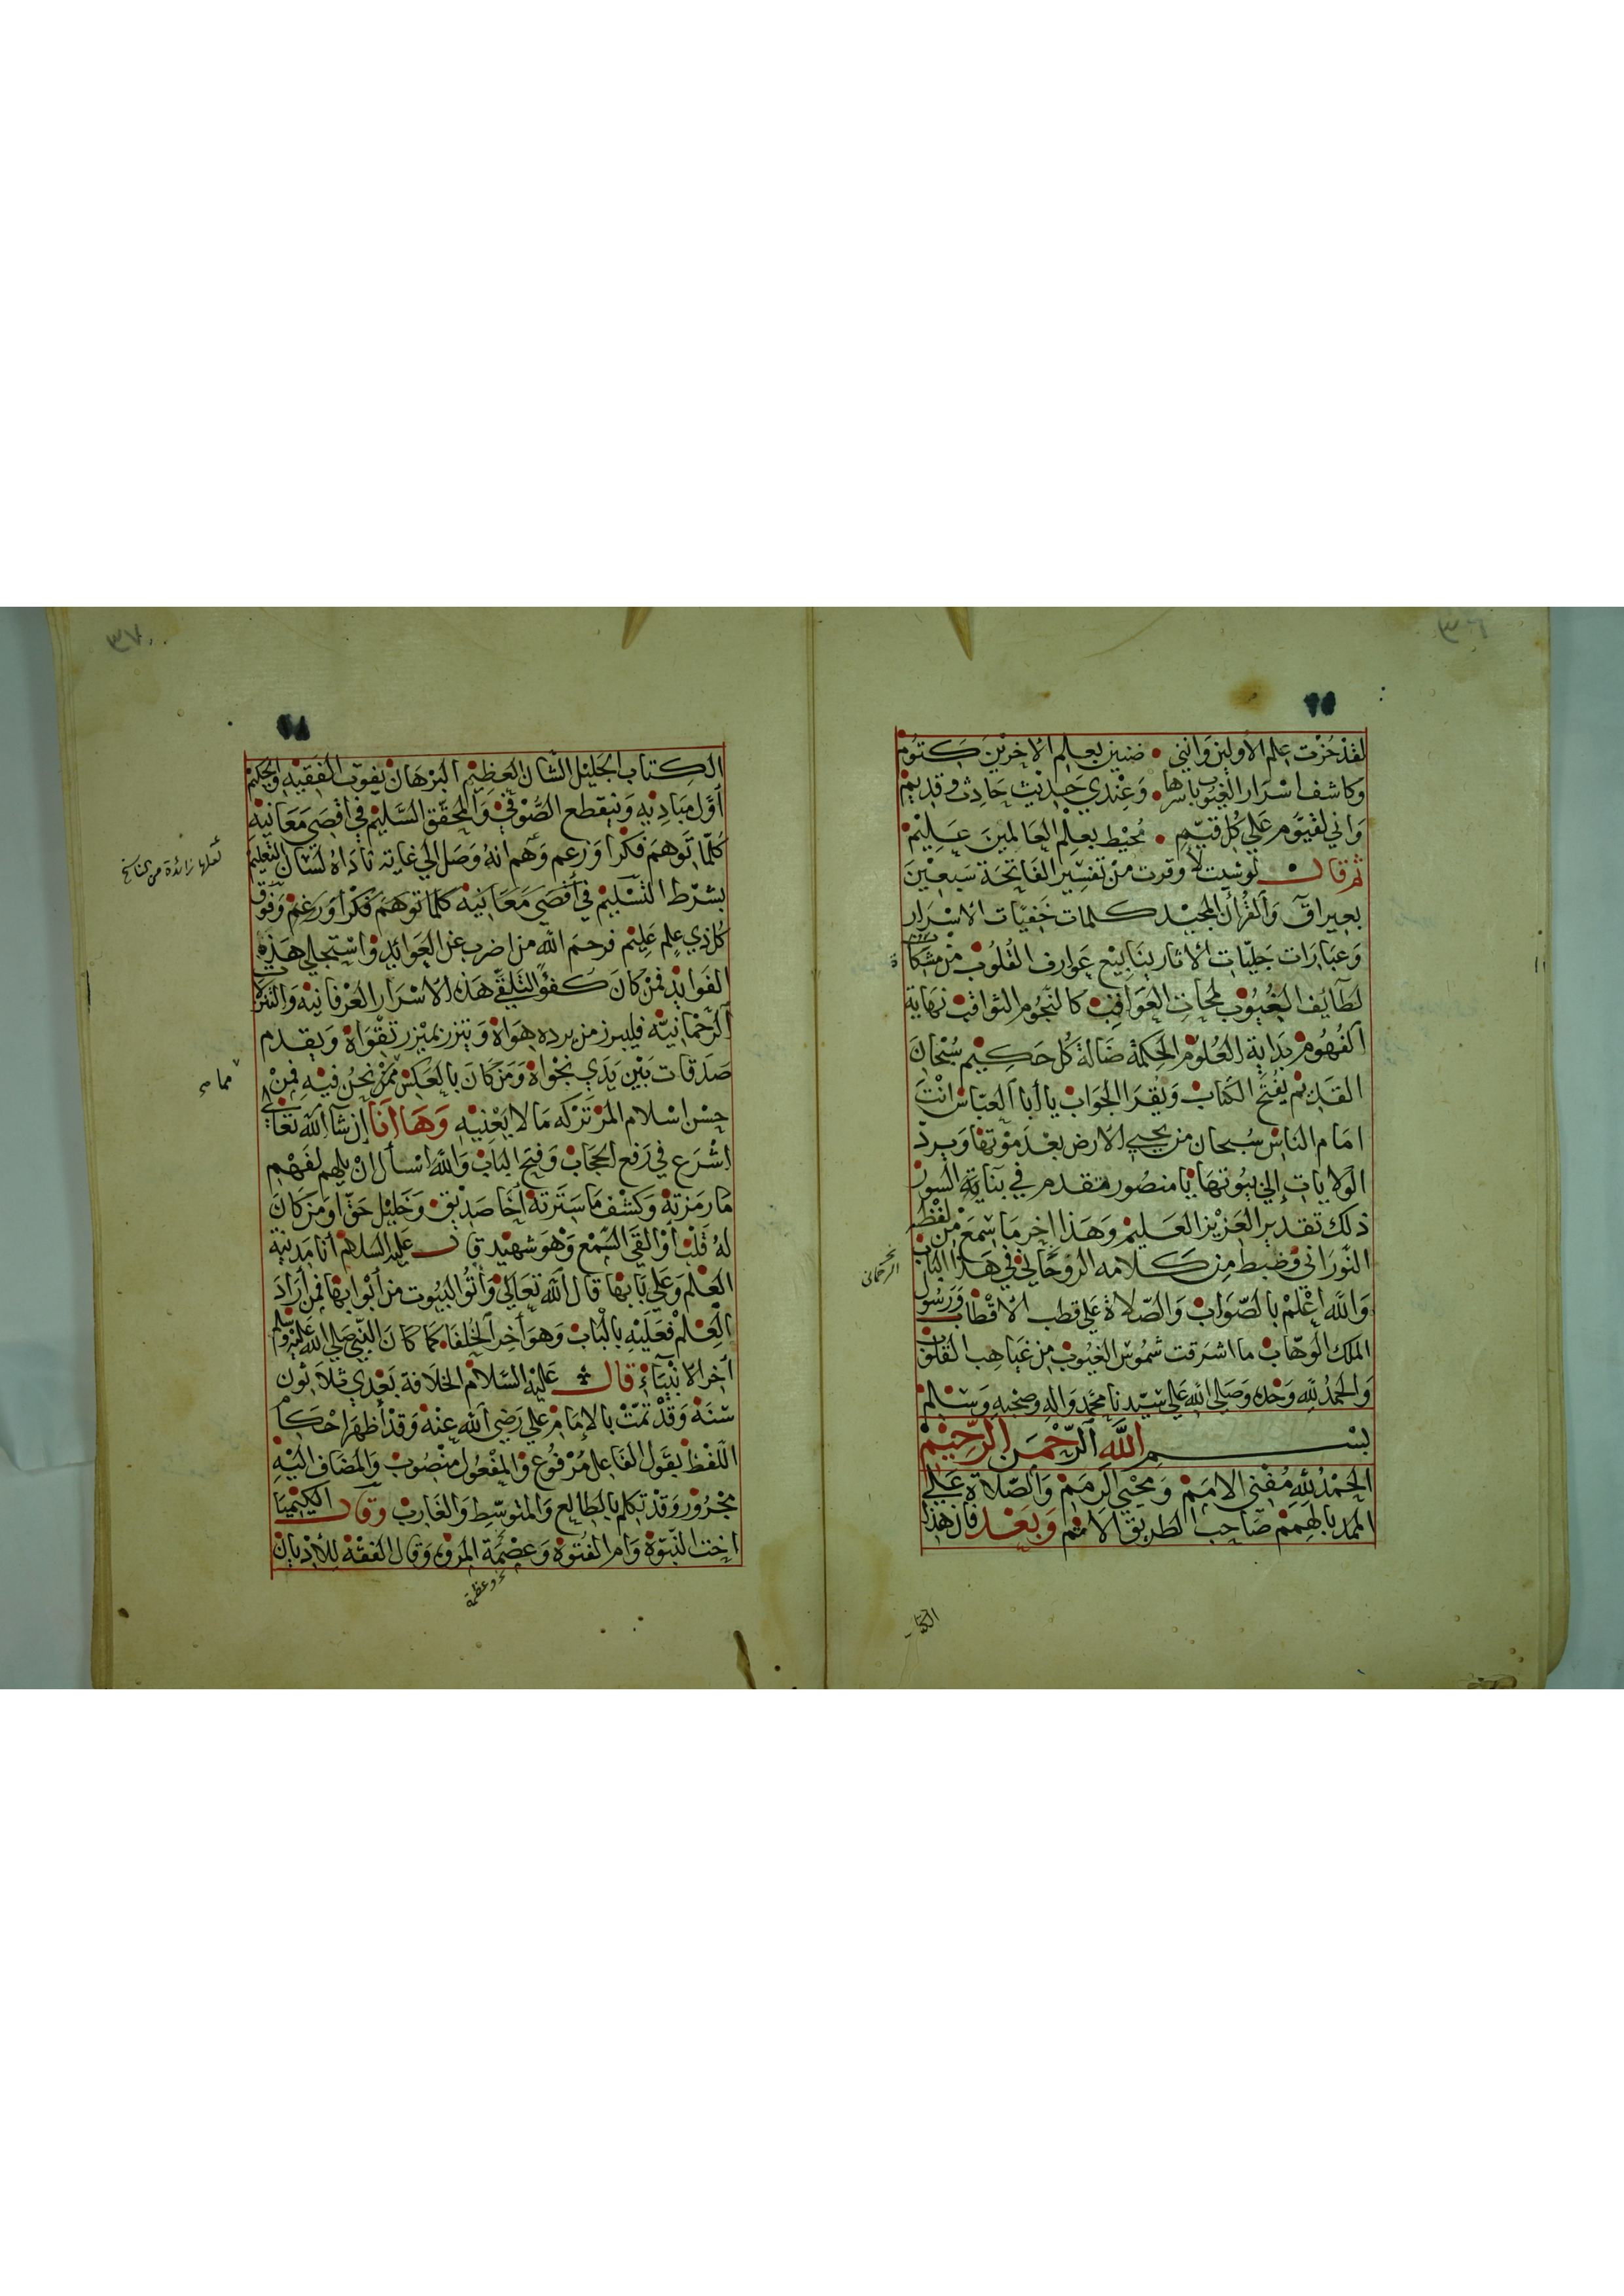 لقد حزت علم الأولين وانني • ضنين بعلم الآخرين كتوم
وكاشف اسرار الغيوب باسرها • وعندي حديث حادث وقديم
واني لقيوم علي كل قيم • محيط بعلم العالمين عليم
ثم قال لو شيت لأوقرت من تفسير الفاتحة سبعين
بعيرا ق والقرآن المجيد كلمات خفيات الاسرار
وعبارات جليات الاثار ينابيع عوارف القلوب من مشكاة
لطايف الغيوب لمحات العواقب كالنجوم الثواقب نهاية
الفهوم بداية العلوم الحكمة ضالة كل حكيم سبحان
القديم يفتح الكتاب ويقرا الجواب يا أبا العباس انت
امام الناس سبحان من يحيي الارض بعد موتها ويرد
الولايات إلي بيوتها يا منصور تقدم في بناية السور
ذلك تقدير العزيز العليم وهذا اخر ما سمع من لفظه
النوراني وضبط من كلامه الروحاني في هذا الباب
الرحماني
والله اعلم بالصواب والصلاة علي قطب الاقطاب ورسول
الملك الوهاب ما اشرقت شموس الغيوب من غياهب القلوب
والحمد لله وحده وصلي الله علي سيدنا محمد واله وصحبه وسلم
بسم الله الرحمن الرحيم
الحمد لله مفني الامم ومحيي الرمم والصلاة علي
الممد بالهمم صاحب الطريق الامم وبعد فان هذا
الكتاب
٦٨
الكتاب الجليل الشان العظيم البرهان يفوت الفقيه والحكيم
أول مباديه وينقطع الصوفي والمحقق السليم في اقصي معانيه
كلما توهم فكرا وزعم وهم انه وصل الي غايته ناداه لسان التعليم
لعلها زائدة من الناسخ
بشرط التسليم في أقصي معانيه كلما توهم فكرا وزعم وفوق
كل ذي علم عليم فرحم الله من اضرب عن العوائد واستجلي هذه
الفوايد فمن كان كفؤا لتلقي هذه الاسرار العرفانية والتنزلات
الرحمانية فليبرز من برده هواه ويتزر بميزر تقواه ويقدم
صدقات بين يدي نجواه ومن كان بالعكس ممن نحن فيه فمن
حسن اسلام المرء تركه ما لا يعنيه وها أنا إن شا الله تعالي
اشرع في رفع الحجاب وفتح الباب والله اسأل ان يلهم لفهم
ما رمزته وكشف ما سترته أخا صديق وخليل حق او من كان
له قلب أو القي السمع وهو شهيد قال عليه السلام أنا مدينة
العلم وعلي بابها قال الله تعالي وأتوا البيوت من أبوابها فمن أراد
العلم فعليه بالباب وهو أخر الخلفاء كما كان النبي صلي الله عليه وسلم
أخر الانبياء قال عليه السلام الخلافة بعدي ثلاثون
سنة وقد تمت بالإمام علي رضي الله عنه وقد أظهر احكام
اللفظ بقول الفاعل مرفوع والمفعول منصوب والمضاف اليه
مجرور وقد تكلم بالطالع والمتوسط والغارب وقال الكيميا
اخت النبوة وام الفتوة وعصمة المروة وقال الفقه للأديان
وعظمة